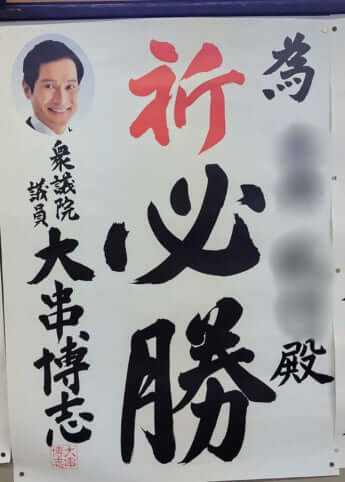 為
殿
祈必勝
衆議院
議員
大串博志
大串
博志